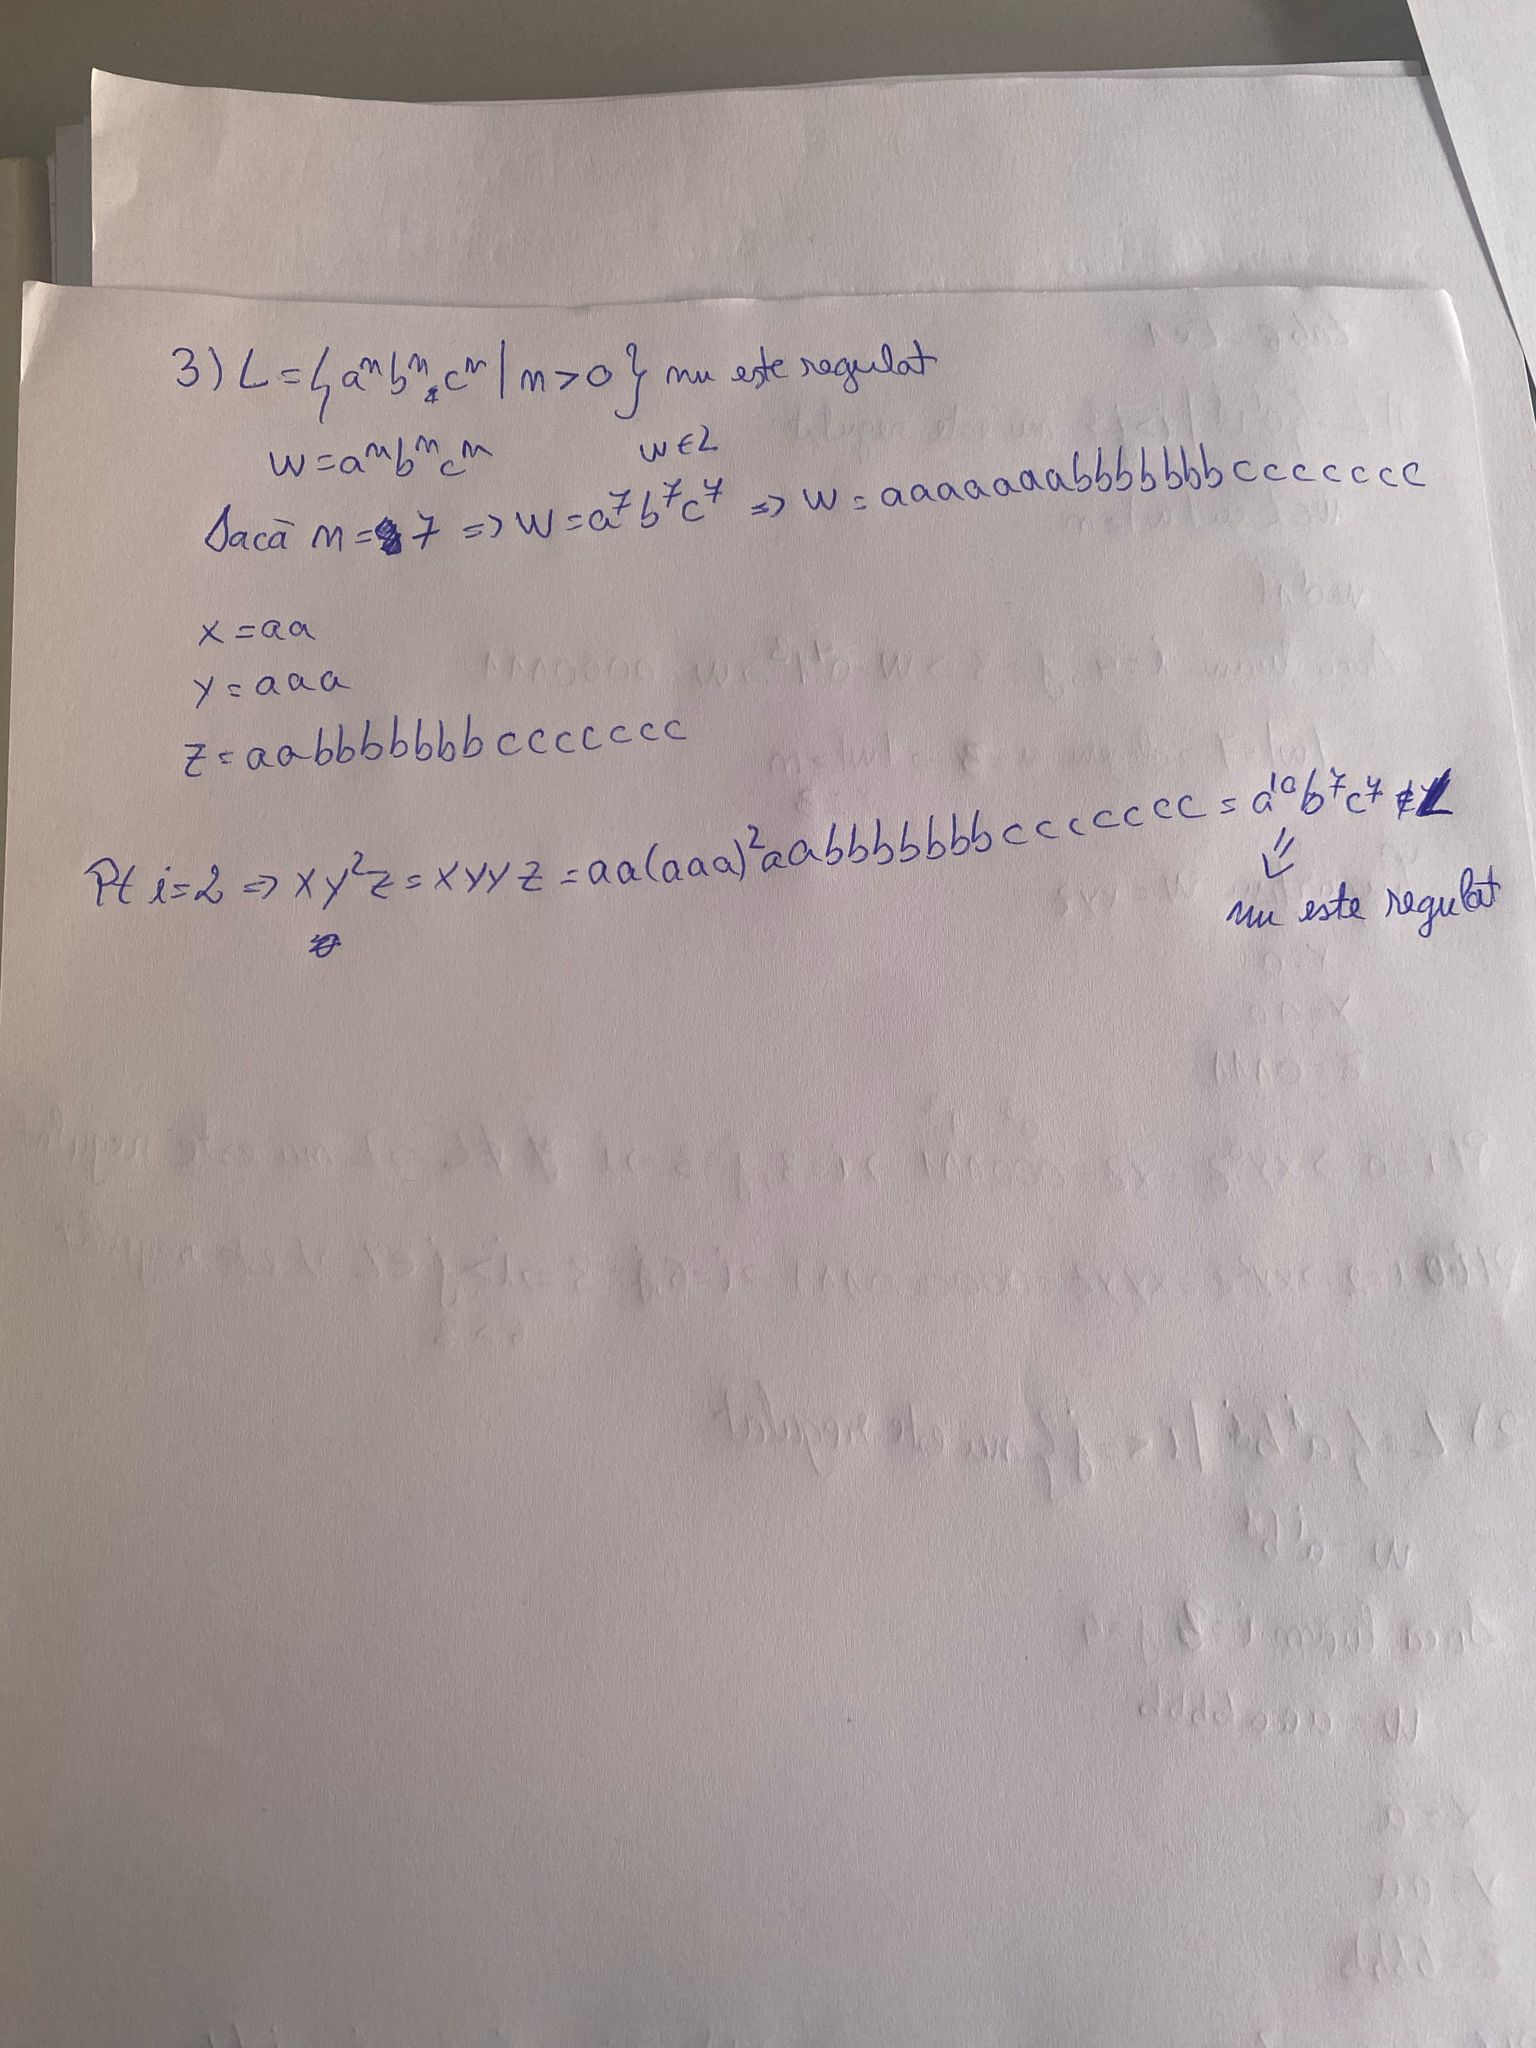 3) L = {aⁿbⁿcⁿ | n > 0} nu este regulat
w = aⁿbⁿcⁿ w ∈ L
Dacă n = 7 => w = a⁷b⁷c⁷ => w = aaaaaaabbbbbbbccccccc
x = aa
y = aaa
z = aabbbbbbbccccccc
Pt i = 2 => xy²z = xyyz = aa(aaa)²aabbbbbbbccccccc = a¹⁰b⁷c⁷ ∉ L
⇓
nu este regulat